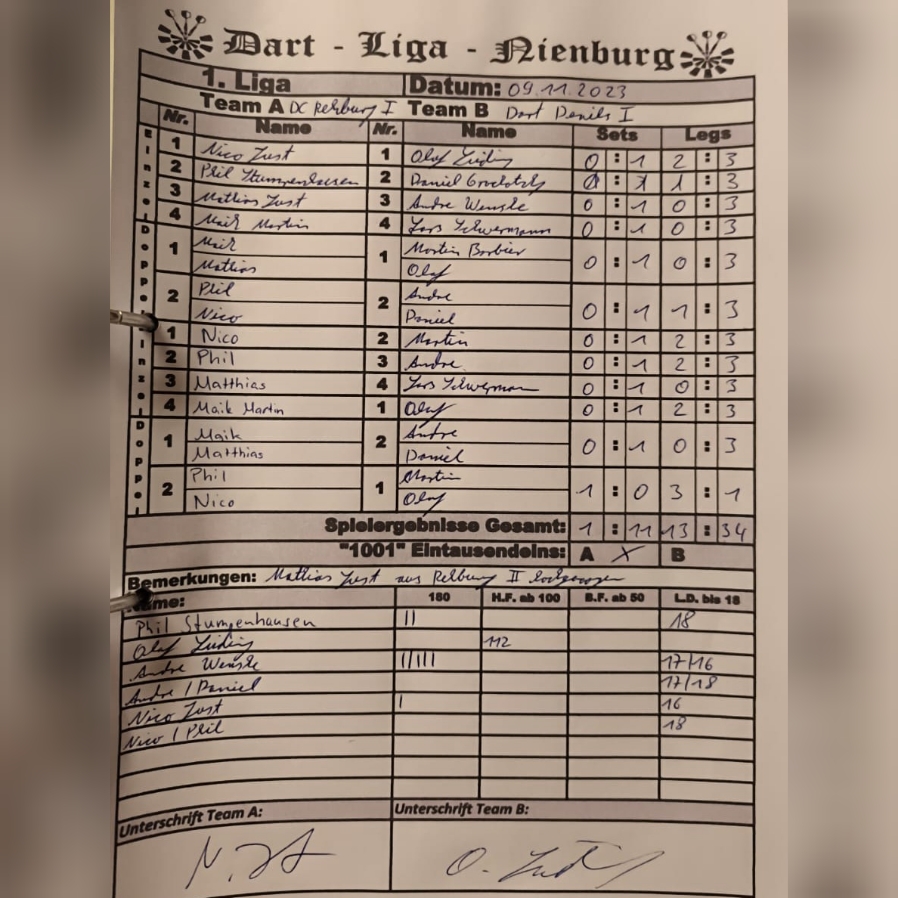 Dart - Liga - Nienburg
1. Liga Datum: 09.11.2023
Team A DC Rehburg I Team B Dart Devils I
Nr. Name Nr. Name Sets Legs
Einzel
1 Nico Just 1 Olaf 0 : 1 2 : 3
2 Phil Stumpenhausen 2 Daniel 0 : 1 1 : 3
3 Mathias Just 3 Andre Wenske 0 : 1 0 : 3
4 Maik Martin 4 Lars Schwermann 0 : 1 0 : 3
Doppel
1 Maik 1 Martin Borbier 0 : 1 0 : 3
Mathias Olaf
2 Phil 2 Andre 0 : 1 1 : 3
Nico Daniel
Einzel
1 Nico 2 Martin 0 : 1 2 : 3
2 Phil 3 Andre 0 : 1 2 : 3
3 Matthias 4 Lars Schwermann 0 : 1 0 : 3
4 Maik Martin 1 Olaf 0 : 1 2 : 3
Doppel
1 Maik 2 Andre 0 : 1 0 : 3
Matthias Daniel
2 Phil 1 Martin 1 : 0 3 : 1
Nico Olaf
Spielergebnisse Gesamt: 1 : 11 13 : 34
"1001" Eintausendeins: A X B
Bemerkungen: Mathias Just aus Rehburg II
Name: 180 H.F. ab 100 B.F. ab 50 L.D. bis 18
Phil Stumpenhausen || 18
Olaf 112
Andre Wenske |||||| 17/16
Andre / Daniel 17/18
Nico Just | 16
Nico / Phil 18
Unterschrift Team A: Unterschrift Team B: